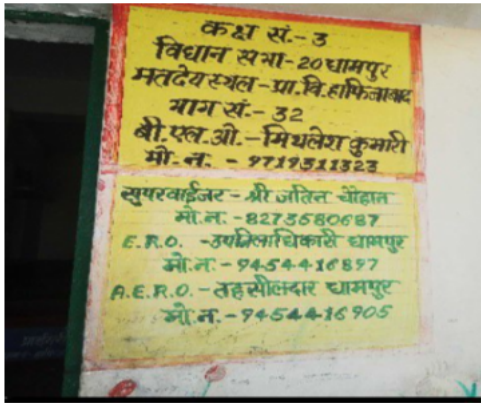 कक्ष सं.- 3
विधान सभा-20 धामपुर
मतदेय स्थल-प्रा.वि.हाफिजाबाद
भाग सं.- 32
बी.एल.ओ.-मिथलेश कुमारी
मो.न. - 9719311323
सुपरवाईजर- श्री जतिन चौहान
मो.न.-8273680687
E.R.O. -उपजिलाधिकारी धामपुर
मो.न.-9454416897
A.E.R.O.-तहसीलदार धामपुर
मो.न.-9454416905